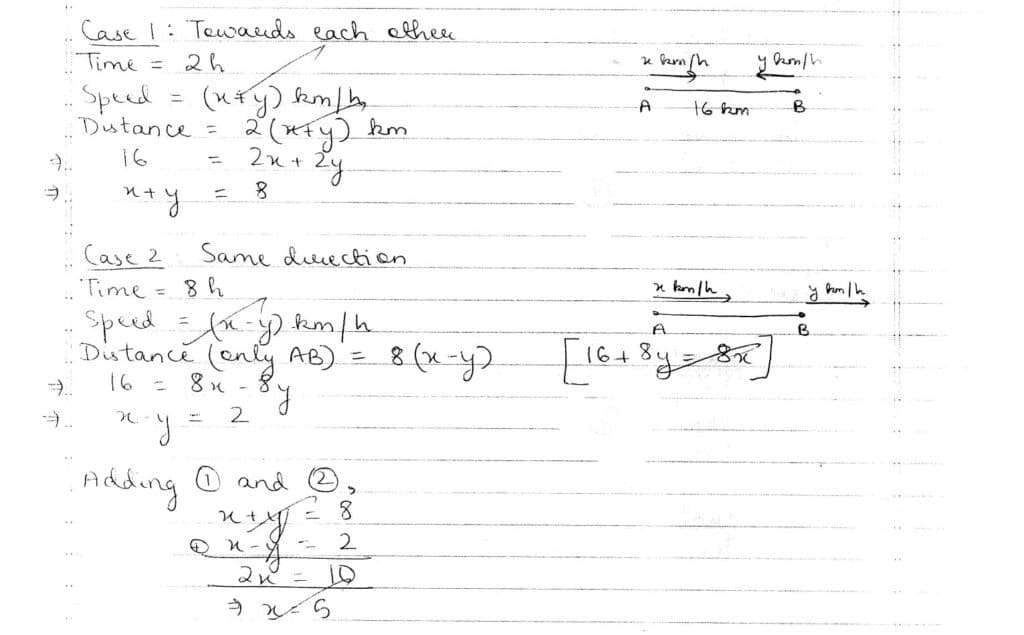 Case 1 : Towards each other
Time = 2h
Speed = (x+y) km/h
Distance = 2(x+y) km
⇒ 16 = 2x + 2y
⇒ x+y = 8
x km/h y km/h
A 16 km B
Case 2 Same direction
Time = 8h
Speed = (x-y) km/h
Distance (only AB) = 8(x-y) [16+8y = 8x]
⇒ 16 = 8x - 8y
⇒ x-y = 2
x km/h y km/h
A B
Adding ① and ②,
x+y = 8
⊕ x-y = 2
2x = 10
⇒ x = 5